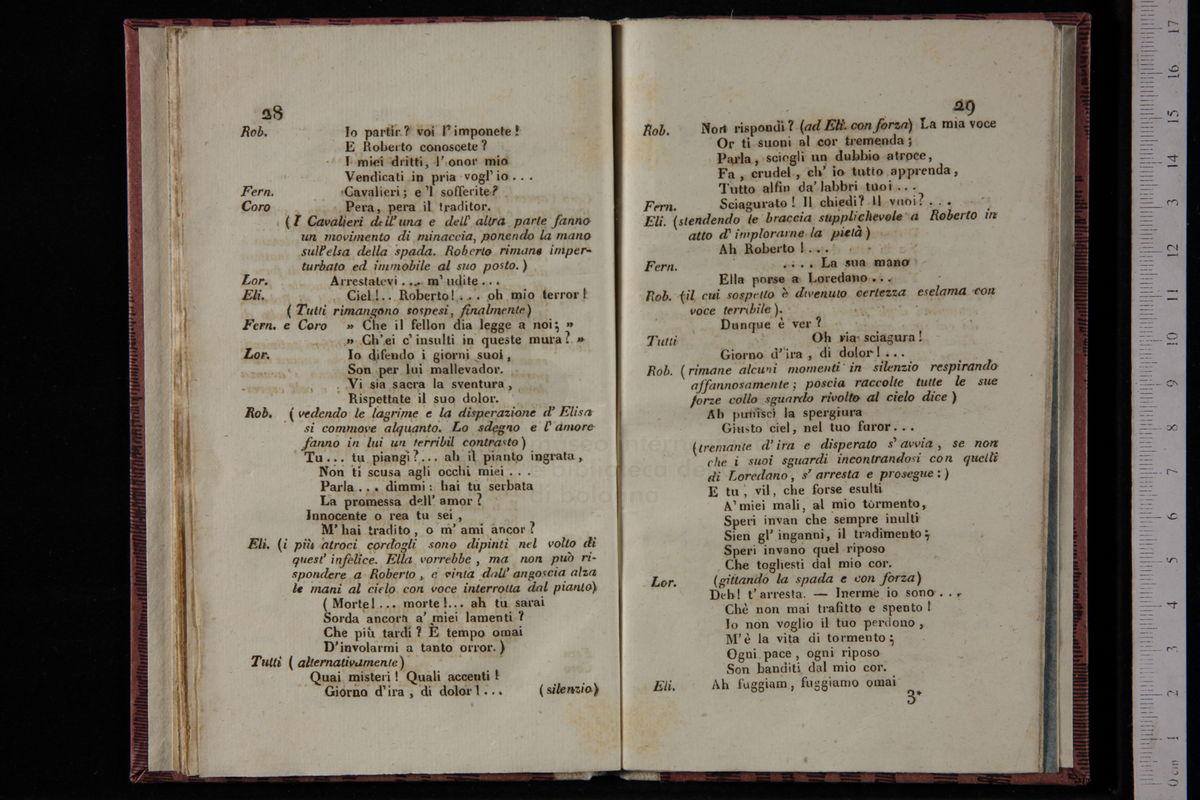 28
Rob. Io partir? voi l'imponete!
E Roberto conoscete?
I miei dritti, l'onor mio
Vendicati in pria vogl'io...
Fern. Cavalieri; e 'l sofferite?
Coro Pera, pera il traditor.
(I Cavalieri dell'una e dell'altra parte fanno
un movimento di minaccia, ponendo la mano
sull'elsa della spada. Roberto rimane imper-
turbato ed immobile al suo posto.)
Lor. Arrestatevi... m'udite...
Eli. Ciel!.. Roberto!... oh mio terror!
(Tutti rimangono sospesi, finalmente)
Fern. e Coro » Che il fellon dia legge a noi; »
» Ch'ei c'insulti in queste mura? »
Lor. Io difendo i giorni suoi,
Son per lui mallevador.
Vi sia sacra la sventura,
Rispettate il suo dolor.
Rob. (vedendo le lagrime e la disperazione d'Elisa
si commove alquanto. Lo sdegno e l'amore
fanno in lui un terribil contrasto)
Tu... tu piangi?... ah il pianto ingrata,
Non ti scusa agli occhi miei...
Parla... dimmi: hai tu serbata
La promessa dell'amor?
Innocente o rea tu sei,
M'hai tradito, o m'ami ancor?
Eli. (i più atroci cordogli sono dipinti nel volto di
quest'infelice. Ella vorrebbe, ma non può ri-
spondere a Roberto, e vinta dall'angoscia alza
le mani al cielo con voce interrotta dal pianto)
(Morte!... morte!... ah tu sarai
Sorda ancora a' miei lamenti?
Che più tardi? È tempo omai
D'involarmi a tanto orror.)
Tutti (alternativamente)
Quai misteri! Quali accenti!
Giorno d'ira, di dolor!... (silenzio)
29
Rob. Non rispondi? (ad Eli. con forza) La mia voce
Or ti suoni al cor tremenda;
Parla, sciogli un dubbio atroce,
Fa, crudel, ch'io tutto apprenda,
Tutto alfin da' labbri tuoi...
Fern. Sciagurato! Il chiedi? Il vuoi?...
Eli. (stendendo le braccia supplichevole a Roberto in
atto d'implorarne la pietà)
Ah Roberto!...
Fern. .... La sua mano
Ella porse a Loredano...
Rob. (il cui sospetto è divenuto certezza esclama con
voce terribile).
Dunque è ver?
Tutti Oh ria sciagura!
Giorno d'ira, di dolor!...
Rob. (rimane alcuni momenti in silenzio respirando
affannosamente; poscia raccolte tutte le sue
forze collo sguardo rivolto al cielo dice)
Ah punisci la spergiura
Giusto ciel, nel tuo furor...
(tremante d'ira e disperato s'avvia, se non
che i suoi sguardi incontrandosi con quelli
di Loredano, s'arresta e prosegue:)
E tu, vil, che forse esulti
A' miei mali, al mio tormento,
Speri invan che sempre inulti
Sien gl'inganni, il tradimento;
Speri invano quel riposo
Che togliesti dal mio cor.
Lor. (gittando la spada e con forza)
Deh! t'arresta. — Inerme io sono...
Chè non mai trafitto e spento!
Io non voglio il tuo perdono,
M'è la vita di tormento;
Ogni pace, ogni riposo
Son banditi dal mio cor.
Eli. Ah fuggiam, fuggiamo omai
3*